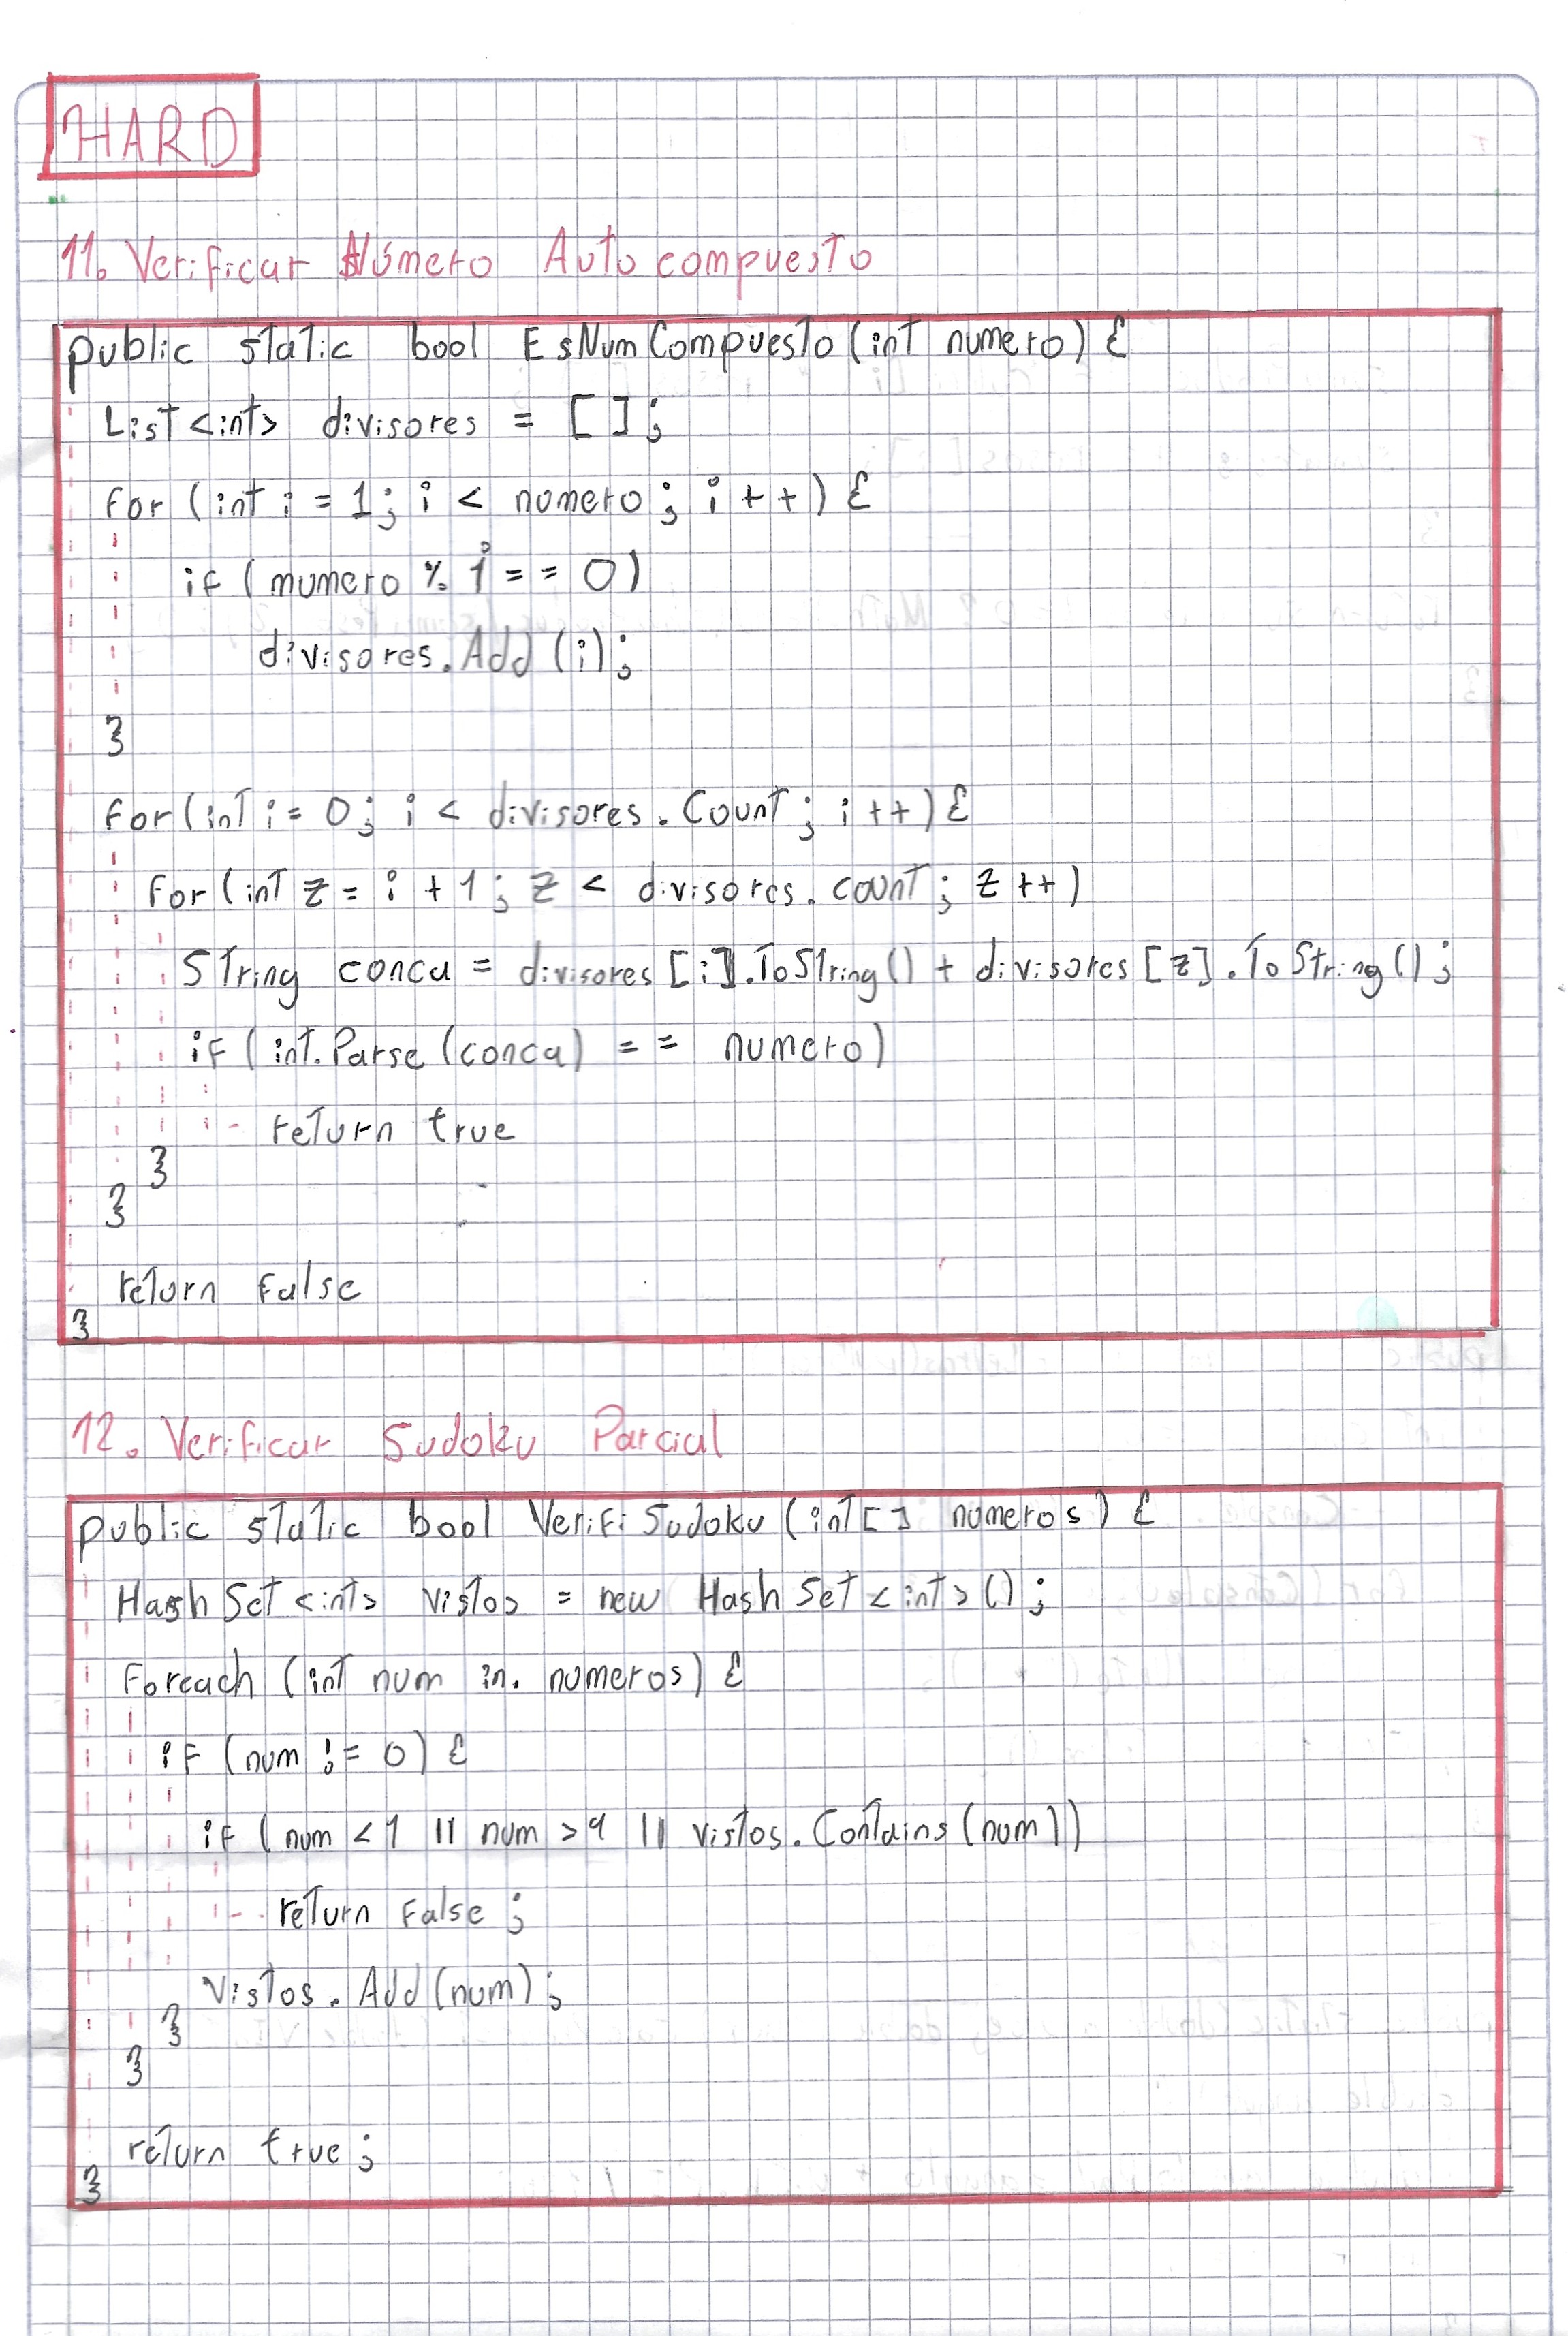 HARD
11. Verificar Número Autocompuesto
public static bool EsNumCompuesto (int numero) {
List <int> divisores = [ ];
for (int i = 1; i < numero; i ++) {
if (numero % i == 0)
divisores.Add (i);
}
for (int i = 0; i < divisores.Count; i ++) {
for (int z = i + 1; z < divisores.count; z ++)
String conca = divisores [i].ToString() + divisores [z].ToString();
if (int.Parse (conca) == numero)
return true
}
}
return false
}
12. Verificar Sudoku Parcial
public static bool VerifiSudoku (int [] numeros) {
HashSet <int> vistos = new HashSet <int> ();
foreach (int num in. numeros) {
if (num != 0) {
if (num < 1 || num > 9 || vistos.Contains (num))
return false;
vistos.Add (num);
}
}
return true;
}